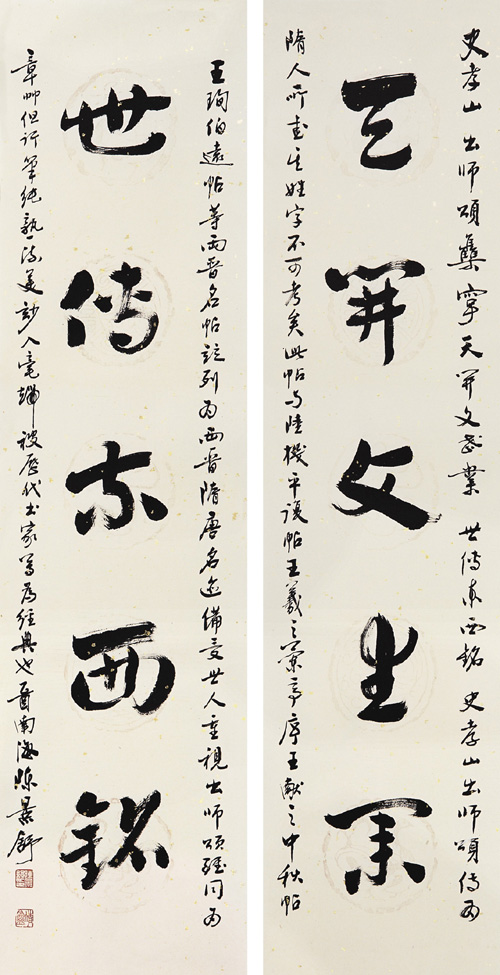 史孝山出師頌集字天開文武業 世傳東西銘 史孝山出師頌傳為
天開文武業
隋人所書其姓字不可考矣此帖與陸機平復帖王羲之蘭亭序王獻之中秋帖
王珣伯遠帖等兩晉名帖並列為西晉隋唐名迹備受世人重視出師頌雖同為
世傳東西銘
章草但行筆純熟流美妙入毫端被歷代書家尊為經典也 南海陳景舒